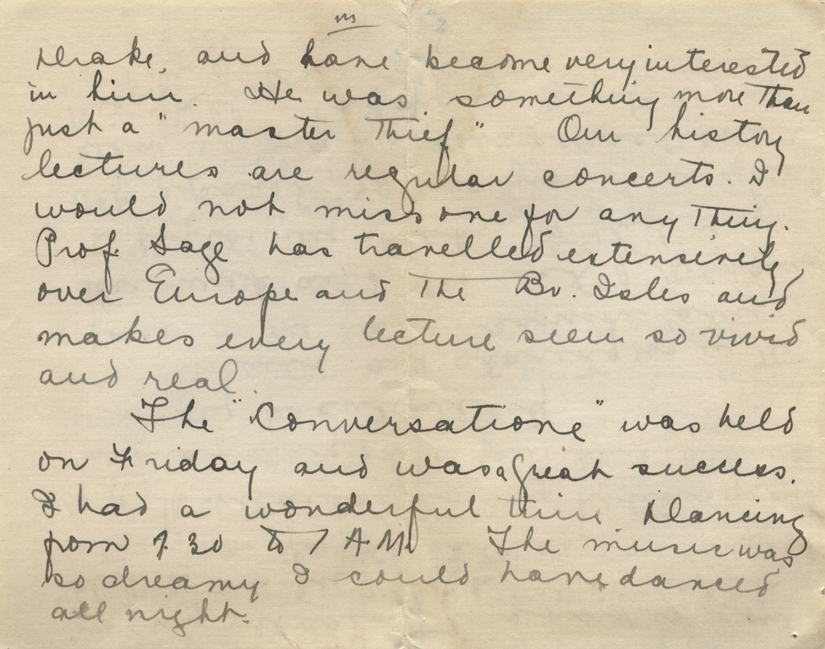 m
Drake, and have become very interested
in him. He was something more than
just a "master thief" Our history
lectures are regular concerts. I
would not miss one for any thing.
Prof. Sage has travelled extensively
over Europe and the Br. Isles and
makes every lecture seem so vivid
and real.
The "Conversatione" was held
on Friday and was a great success.
I had a wonderful time Dancing
from 7.30 to 1 A.M. The music was
so dreamy I could have danced
all night.